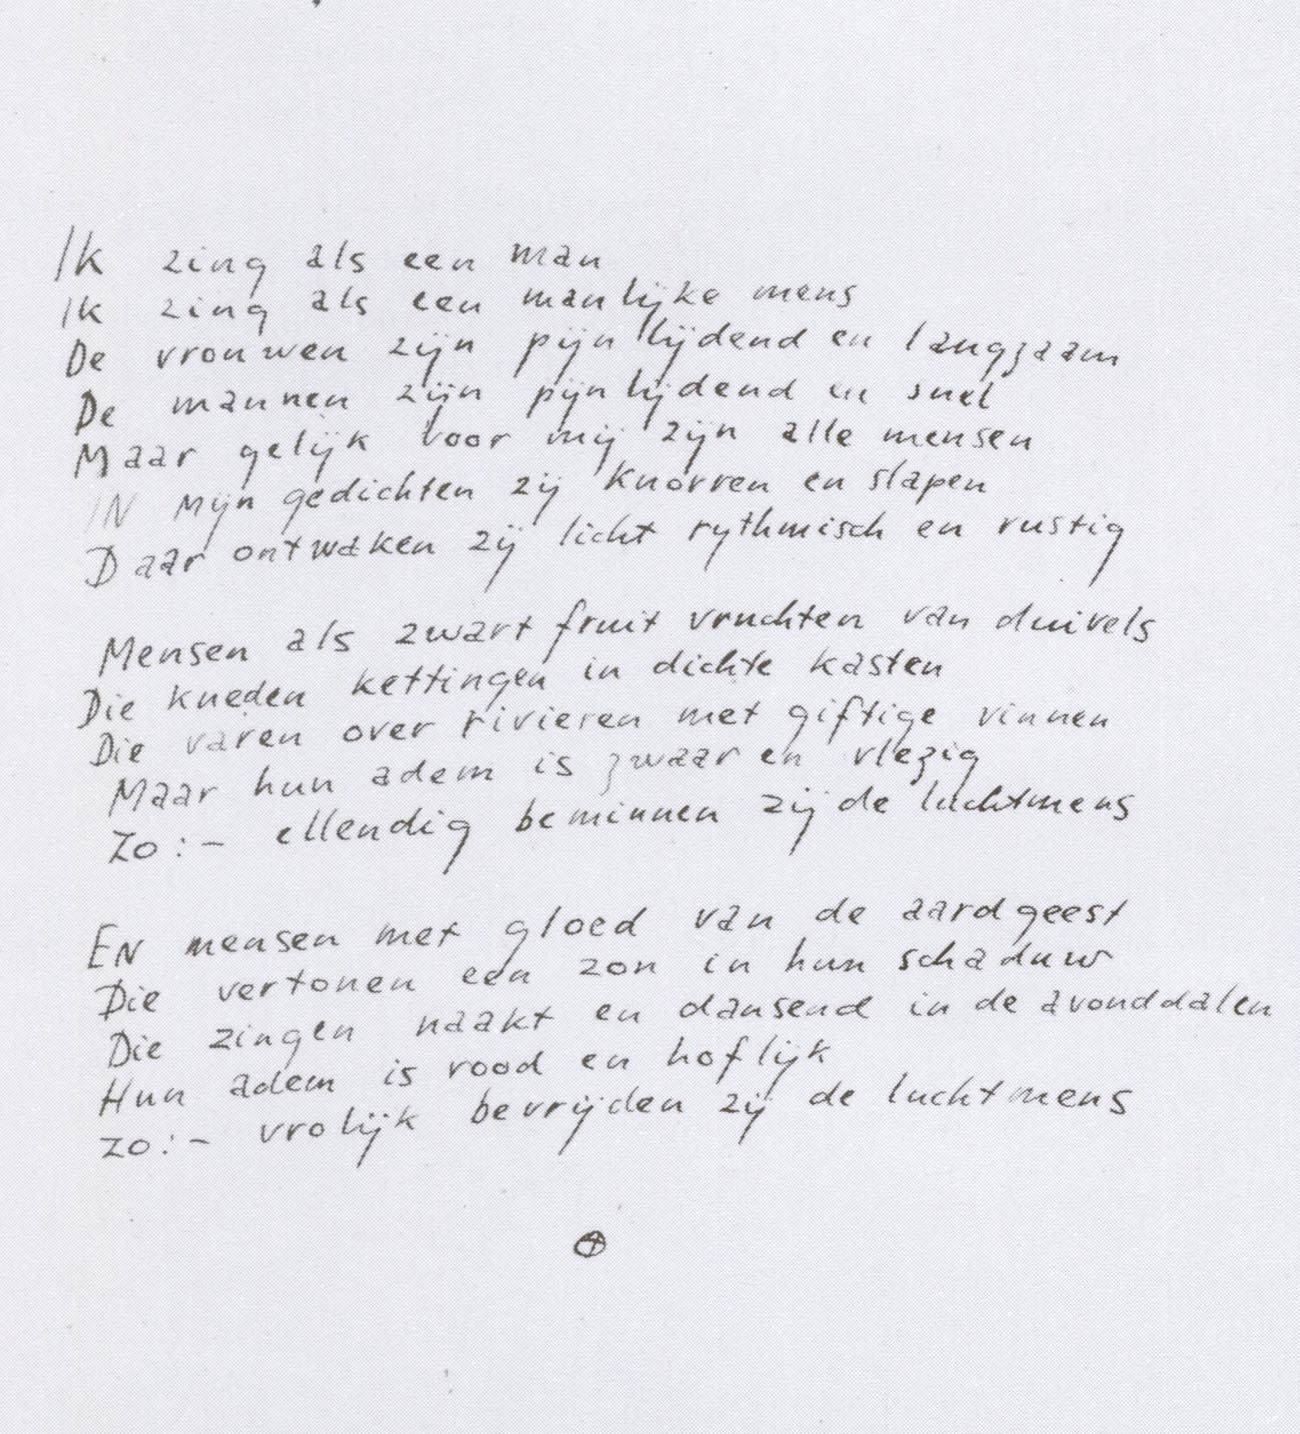 Ik zing als een man
Ik zing als een manlijke mens
De vrouwen zijn pijnlijdend en langzaam
De mannen zijn pijnlijdend en snel
Maar gelijk voor mij zijn alle mensen
IN Mijn gedichten zij knorren en slapen
Daar ontwaken zij licht rythmisch en rustig
Mensen als zwart fruit vruchten van duivels
Die kneden kettingen in dichte kasten
Die varen over rivieren met giftige vinnen
Maar hun adem is zwaar en vlezig
Zo:- ellendig beminnen zij de luchtmens
EN mensen met gloed van de aardgeest
Die vertonen een zon in hun schaduw
Die zingen naakt en dansend in de avonddalen
Hun adem is rood en hoflijk
zo:- vrolijk bevrijden zij de luchtmens
④